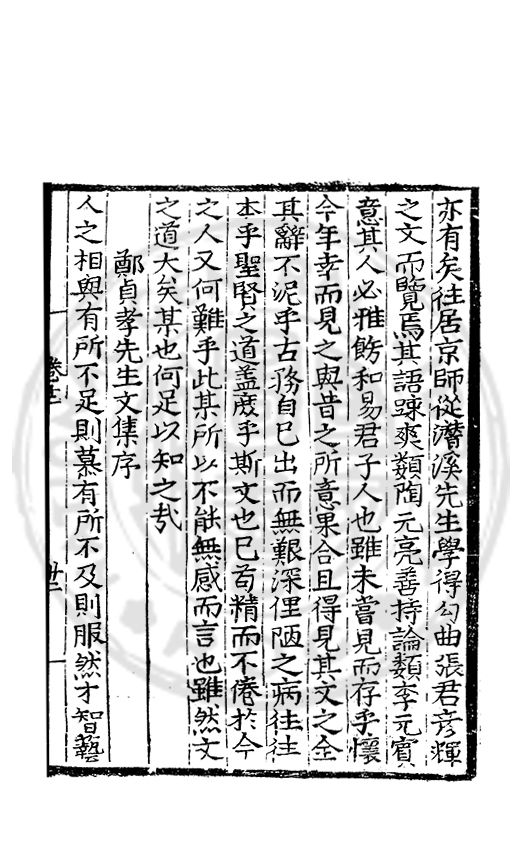 亦有矣往居京師從濳溪先生學得勾曲張君彦輝
之文而覽焉其語踈爽類陶元亮善持論類李元賓
意其人必雅飭和易君子人也雖未嘗見而存乎懷
今年幸而見之與昔之所意果合且得見其文之全
其辭不泥乎古務自已出而無艱深俚陋之病往往
本乎聖賢之道盖庶乎斯文也已苟精而不倦於今
之人又何難乎此某所以不能無感而言也雖然文
之道大矣某也何足以知之哉
鄭貞孝先生文集序
人之相與有所不足則慕有所不及則服然才智藝
卷十二
廿二